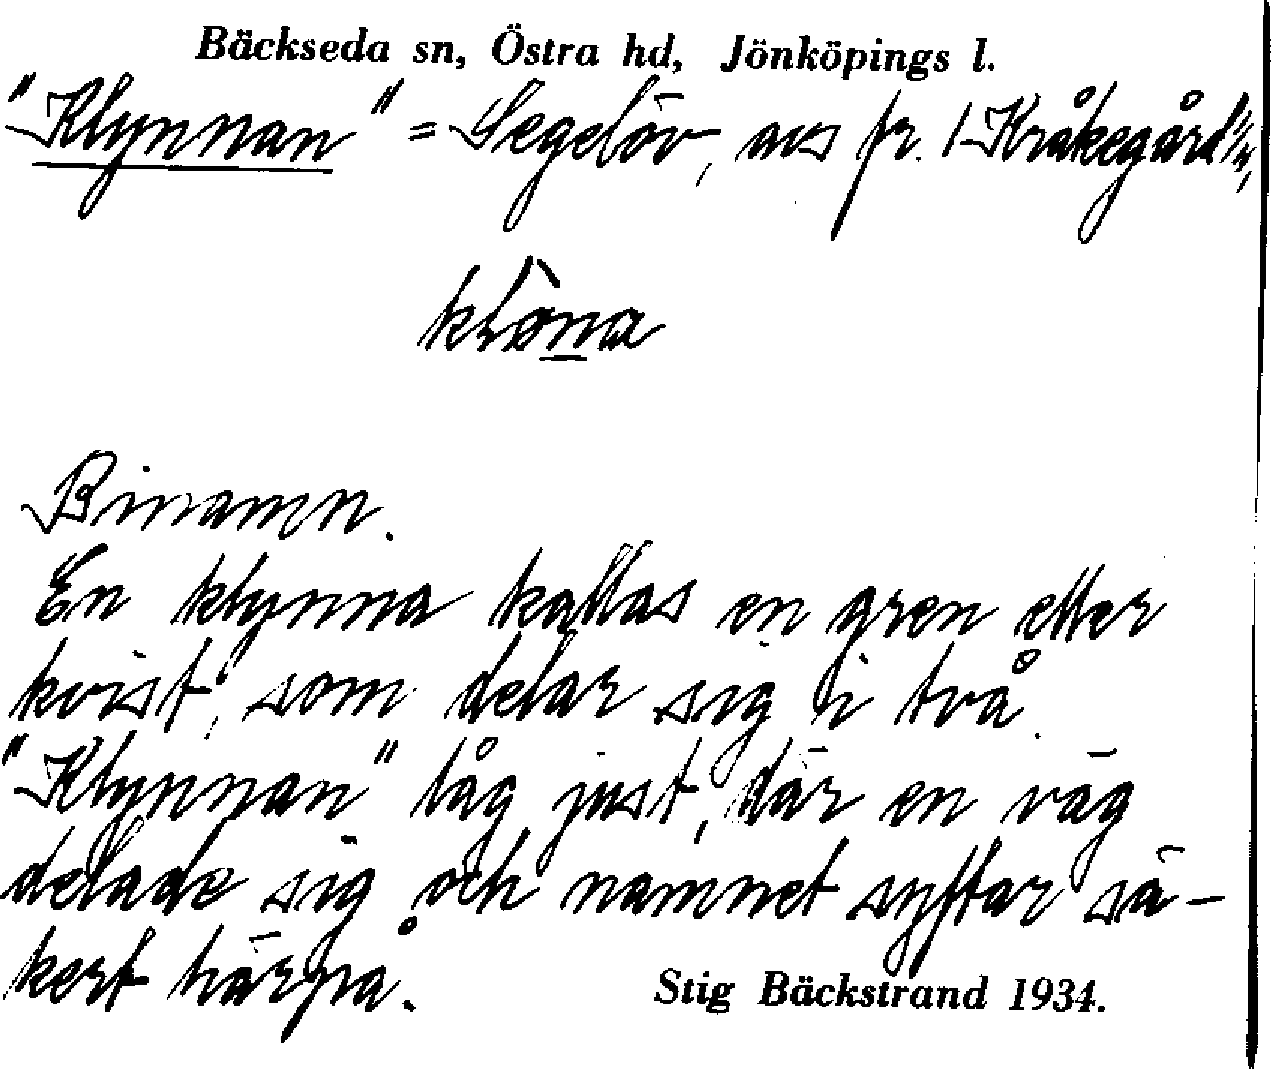 Bäckseda sn, Östra hd, Jönköpings l.
"Klynnan" = Segelöv, avs fr. 1 Kråkegård 1/4,
klö̀na
Binamn.
En klynna kallas en gren eller
kvist, som delar sig i två.
"Klynnan" låg just, där en väg
delade sig och namnet syftar sä-
kert härpå.
Stig Bäckstrand 1934.